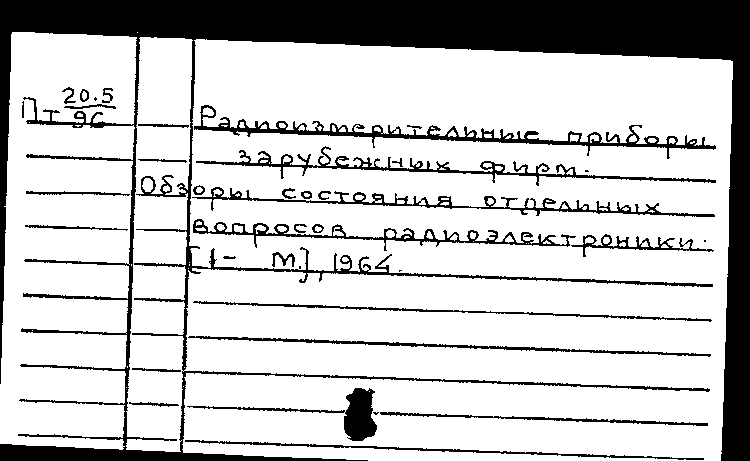 Пт 20.5/96
Радиоизмерительные приборы
зарубежных фирм.
Обзоры состояния отдельных
вопросов радиоэлектроники.
[1- М.], 1964.